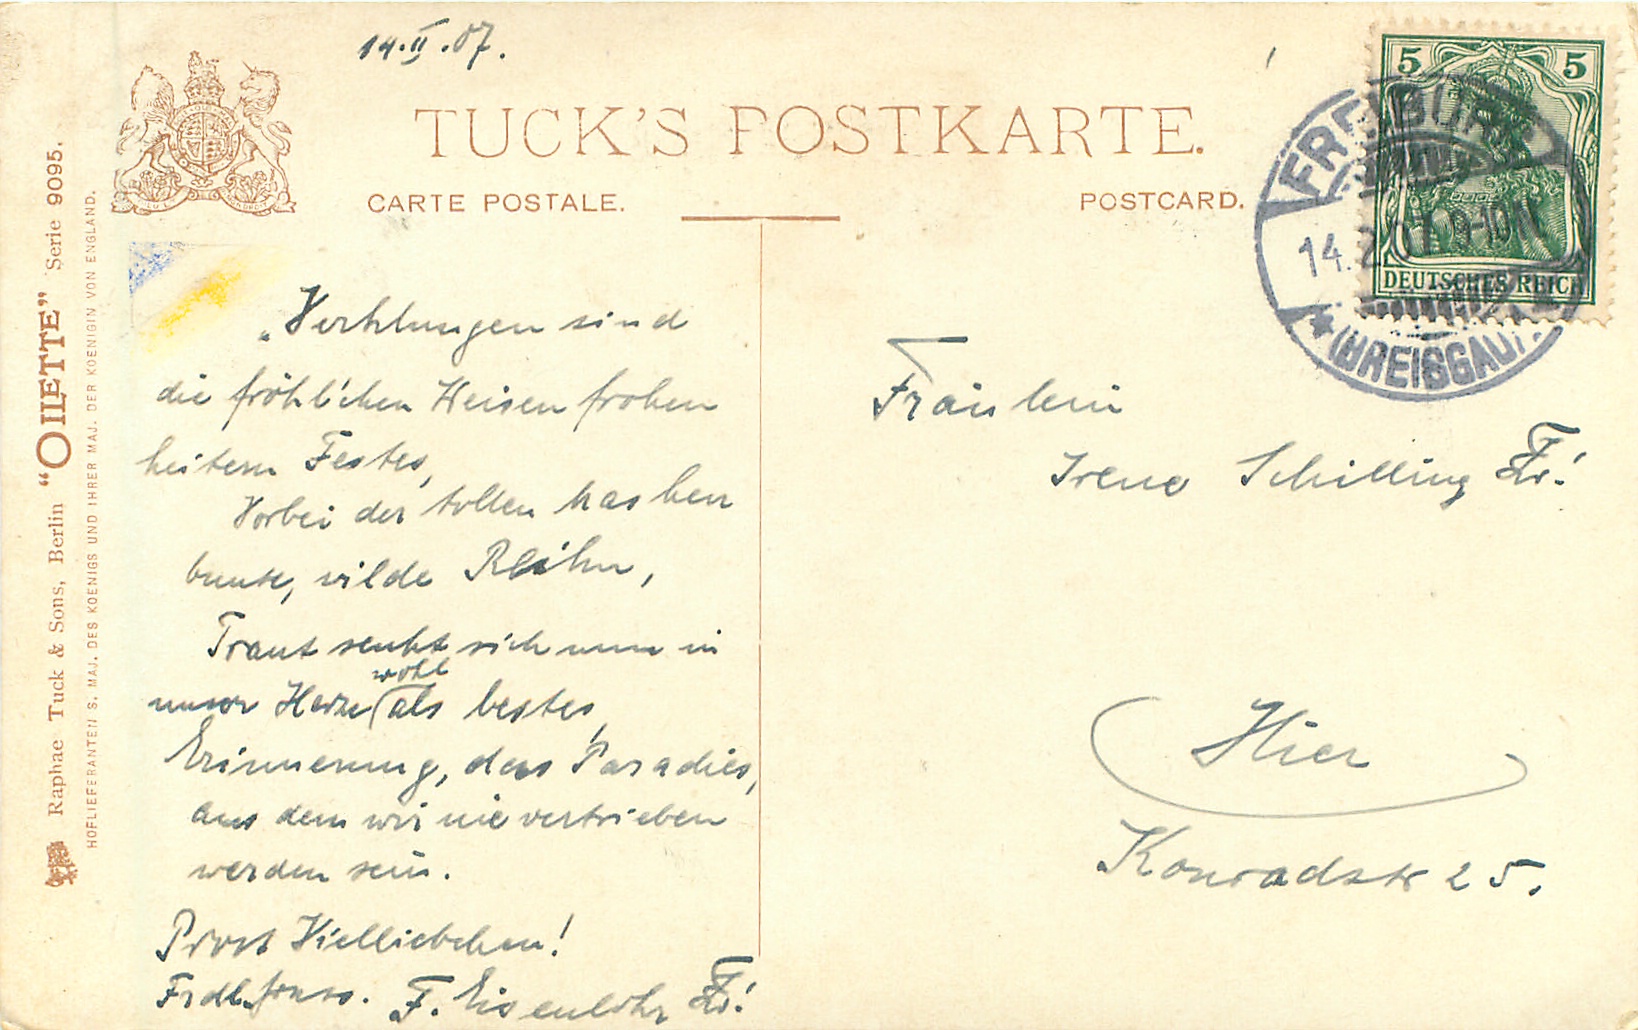 14.II.07.
TUCK'S POSTKARTE.
CARTE POSTALE.
POSTCARD.
5 5
DEUTSCHES REICH
FREIBURG
14.2.07 9-10 N
(BREISGAU)
Raphael Tuck & Sons, Berlin "OILETTE" Serie 9095.
HOFLIEFERANTEN S. MAJ. DES KOENIGS UND IHRER MAJ. DER KOENIGIN VON ENGLAND.
Verklungen sind
die fröhlichen Weisen frohen
heitern Festes,
Vorbei der tollen Masken
bunte, wilde Reihn,
Traut senkt sich nun in
unser Herze wohl als bestes,
Erinnerung, das Paradies,
aus dem wir nie vertrieben
werden sein.
Prost Vielliebchen!
F. Eisenlohr
Fräulein
Irene Schilling
Hier
Konradstr 25.